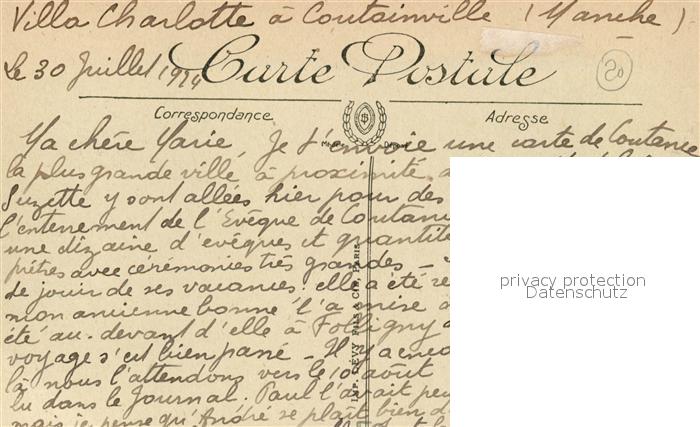 Villa Charlotte à Coutainville (Manche)
Le 30 Juillet 1914
Carte Postale
20
Correspondance
Adresse
Ma chère Marie, Je t'envoie une carte de Coutance
la plus grande ville à proximité
Suzette y sont allées hier pour des
l'enterrement de l'Evêque de Coutan
une dizaine d'evêques et quantité
prêtres avec cérémonies très grandes —
de jouir de ses vacances: elle a été
mon ancienne bonne l'a mise à
été au-devant d'elle à Folligny
voyage s'est bien passé — Il y a enco
là nous l'attendons vers le 10 août
lu dans le Journal. Paul l'avait peu
mais je pense qu'André se plaît bien
IMP. LÉVY FILS & CIE, PARIS
privacy protection
Datenschutz